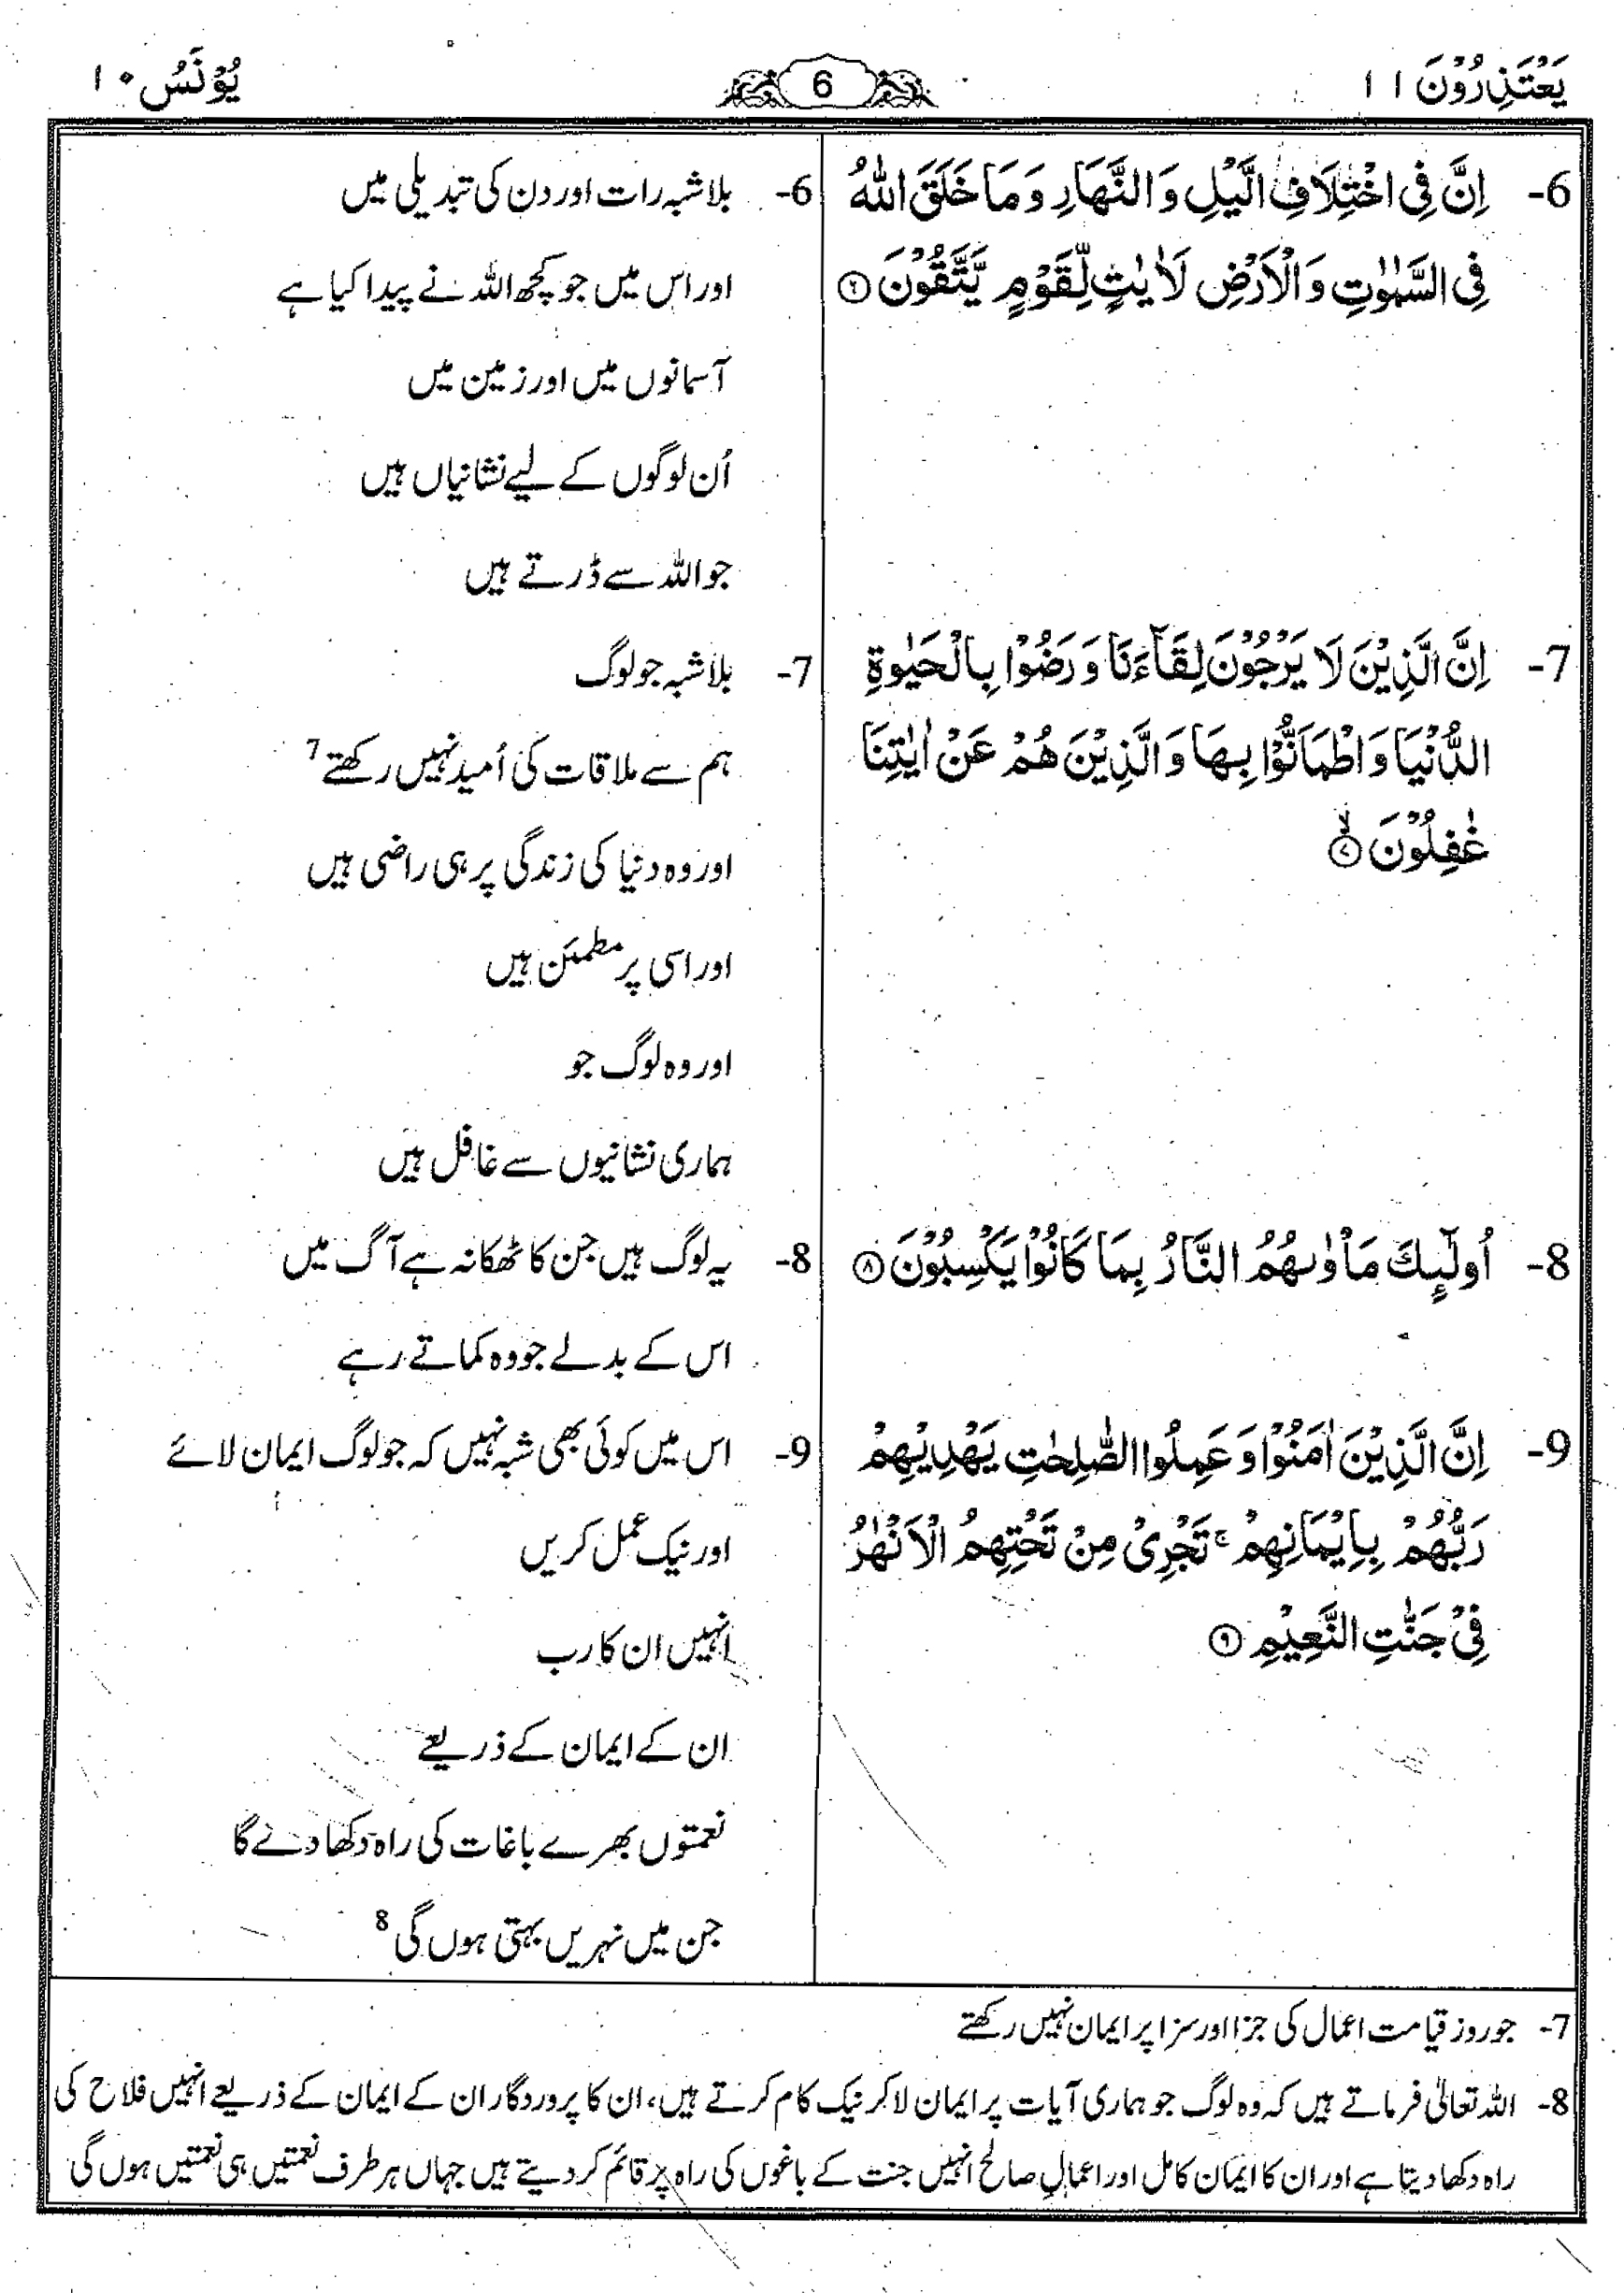 یَعْتَذِرُوْنَ ۱۱
6
یُوْنُسُ ۱۰
6- اِنَّ فِی اخْتِلَافِ الَّیْلِ وَ النَّهَارِ وَ مَا خَلَقَ اللّٰهُ
فِی السَّمٰوٰتِ وَ الْاَرْضِ لَاٰیٰتٍ لِّقَوْمٍ یَّتَّقُوْنَ ۶
7- اِنَّ الَّذِیْنَ لَا یَرْجُوْنَ لِقَآءَنَا وَ رَضُوْا بِالْحَیٰوةِ
الدُّنْیَا وَ اطْمَاَنُّوْا بِهَا وَ الَّذِیْنَ هُمْ عَنْ اٰیٰتِنَا
غٰفِلُوْنَ ۷ۙ
8- اُولٰٓئِكَ مَاْوٰىهُمُ النَّارُ بِمَا كَانُوْا یَكْسِبُوْنَ ۸
9- اِنَّ الَّذِیْنَ اٰمَنُوْا وَ عَمِلُوا الصّٰلِحٰتِ یَهْدِیْهِمْ
رَبُّهُمْ بِاِیْمَانِهِمْ ۚ تَجْرِیْ مِنْ تَحْتِهِمُ الْاَنْهٰرُ
فِیْ جَنّٰتِ النَّعِیْمِ ۹
6- بلاشبہ رات اور دن کی تبدیلی میں
اور اس میں جو کچھ اللہ نے پیدا کیا ہے
آسمانوں میں اور زمین میں
اُن لوگوں کے لیے نشانیاں ہیں
جو اللہ سے ڈرتے ہیں
7- بلاشبہ جو لوگ
ہم سے ملاقات کی اُمید نہیں رکھتے 7
اور وہ دنیا کی زندگی پر ہی راضی ہیں
اور اسی پر مطمئن ہیں
اور وہ لوگ جو
ہماری نشانیوں سے غافل ہیں
8- یہ لوگ ہیں جن کا ٹھکانہ ہے آگ میں
اس کے بدلے جو وہ کماتے رہے
9- اس میں کوئی بھی شبہ نہیں کہ جو لوگ ایمان لائے
اور نیک عمل کریں
انہیں ان کا رب
ان کے ایمان کے ذریعے
نعمتوں بھرے باغات کی راہ دکھا دے گا
جن میں نہریں بہتی ہوں گی 8
7- جو روز قیامت اعمال کی جزا اور سزا پر ایمان نہیں رکھتے
8- اللہ تعالیٰ فرماتے ہیں کہ وہ لوگ جو ہماری آیات پر ایمان لا کر نیک کام کرتے ہیں، ان کا پروردگار ان کے ایمان کے ذریعے انہیں فلاح کی
راہ دکھا دیتا ہے اور ان کا ایمان کامل اور اعمالِ صالح انہیں جنت کے باغوں کی راہ پر قائم کر دیتے ہیں جہاں ہر طرف نعمتیں ہی نعمتیں ہوں گی